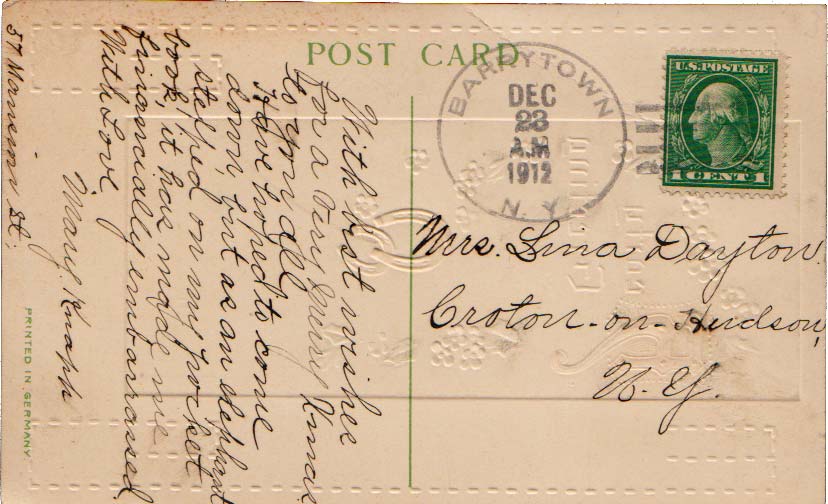 POST CARD
BARRYTOWN
DEC
23
A.M
1912
N.Y.
U.S.POSTAGE
1 CENT 1
Mrs. Lina Dayton.
Croton-on-Hudson,
N. Y.
With best wishes
for a very merry Xmas
to you all
I have hoped to come
down, but as an elephant
stepped on my pocket
book, it has made me
financially embarrassed
With Love
Mary Knapp
57 Mansion St.
PRINTED IN GERMANY